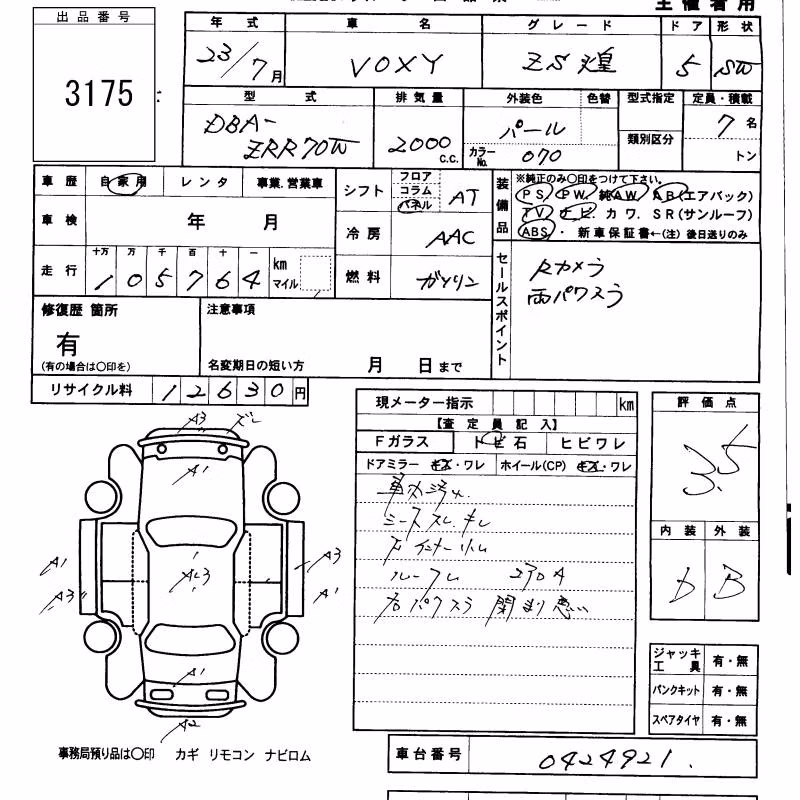 出品番号
3175
年式 車名 グレード ドア 形状
23/7月 VOXY ZS煌 5 SW
型式 排気量 外装色 色替 型式指定 定員・積載
DBA-
ZRR70W
2000 C.C.
パール
カラーNo. 070
類別区分
7名
トン
車歴 自家用 レンタ 事業.営業車
車検 年 月
走行 十万 万 千 百 十 一
105764 km
マイル
シフト フロア
コラム
パネル
AT
冷房 AAC
燃料 ガソリン
装備品
※純正のみ○印をつけて下さい。
PS PW. 純AW. AB(エアバック)
TV ナビ. カワ. SR(サンルーフ)
ABS・ 新車保証書←(注) 後日送りのみ
セールスポイント
Rカメラ
両パワスラ
修復歴 箇所
有
(有の場合は○印を)
注意事項
名変期日の短い方 月 日まで
リサイクル料 12630円
現メーター指示 km
【査定員記入】
Fガラス トビ石 ヒビワレ
ドアミラー キズ・ワレ ホイール(CP) キズ・ワレ
車内汚れ
シートスレ.キレ
ルーフレ
右パワスラ 閉まり悪い
評価点
3.5
内装 外装
D B
A3
A1
A1
A3
A3
A1
A1
A2
ジャッキ
工具 有・無
パンクキット 有・無
スペアタイヤ 有・無
事務局預り品は○印 カギ リモコン ナビロム
車台番号 0424921.